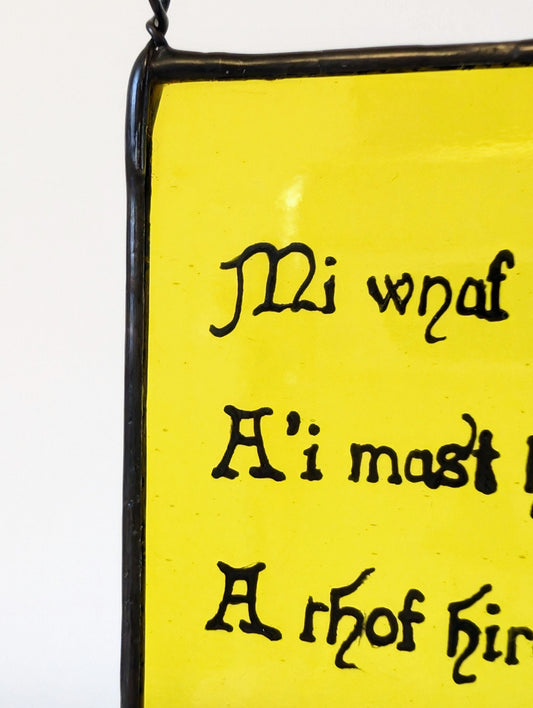 Mi wnaf
A'i mast
A rhof hir